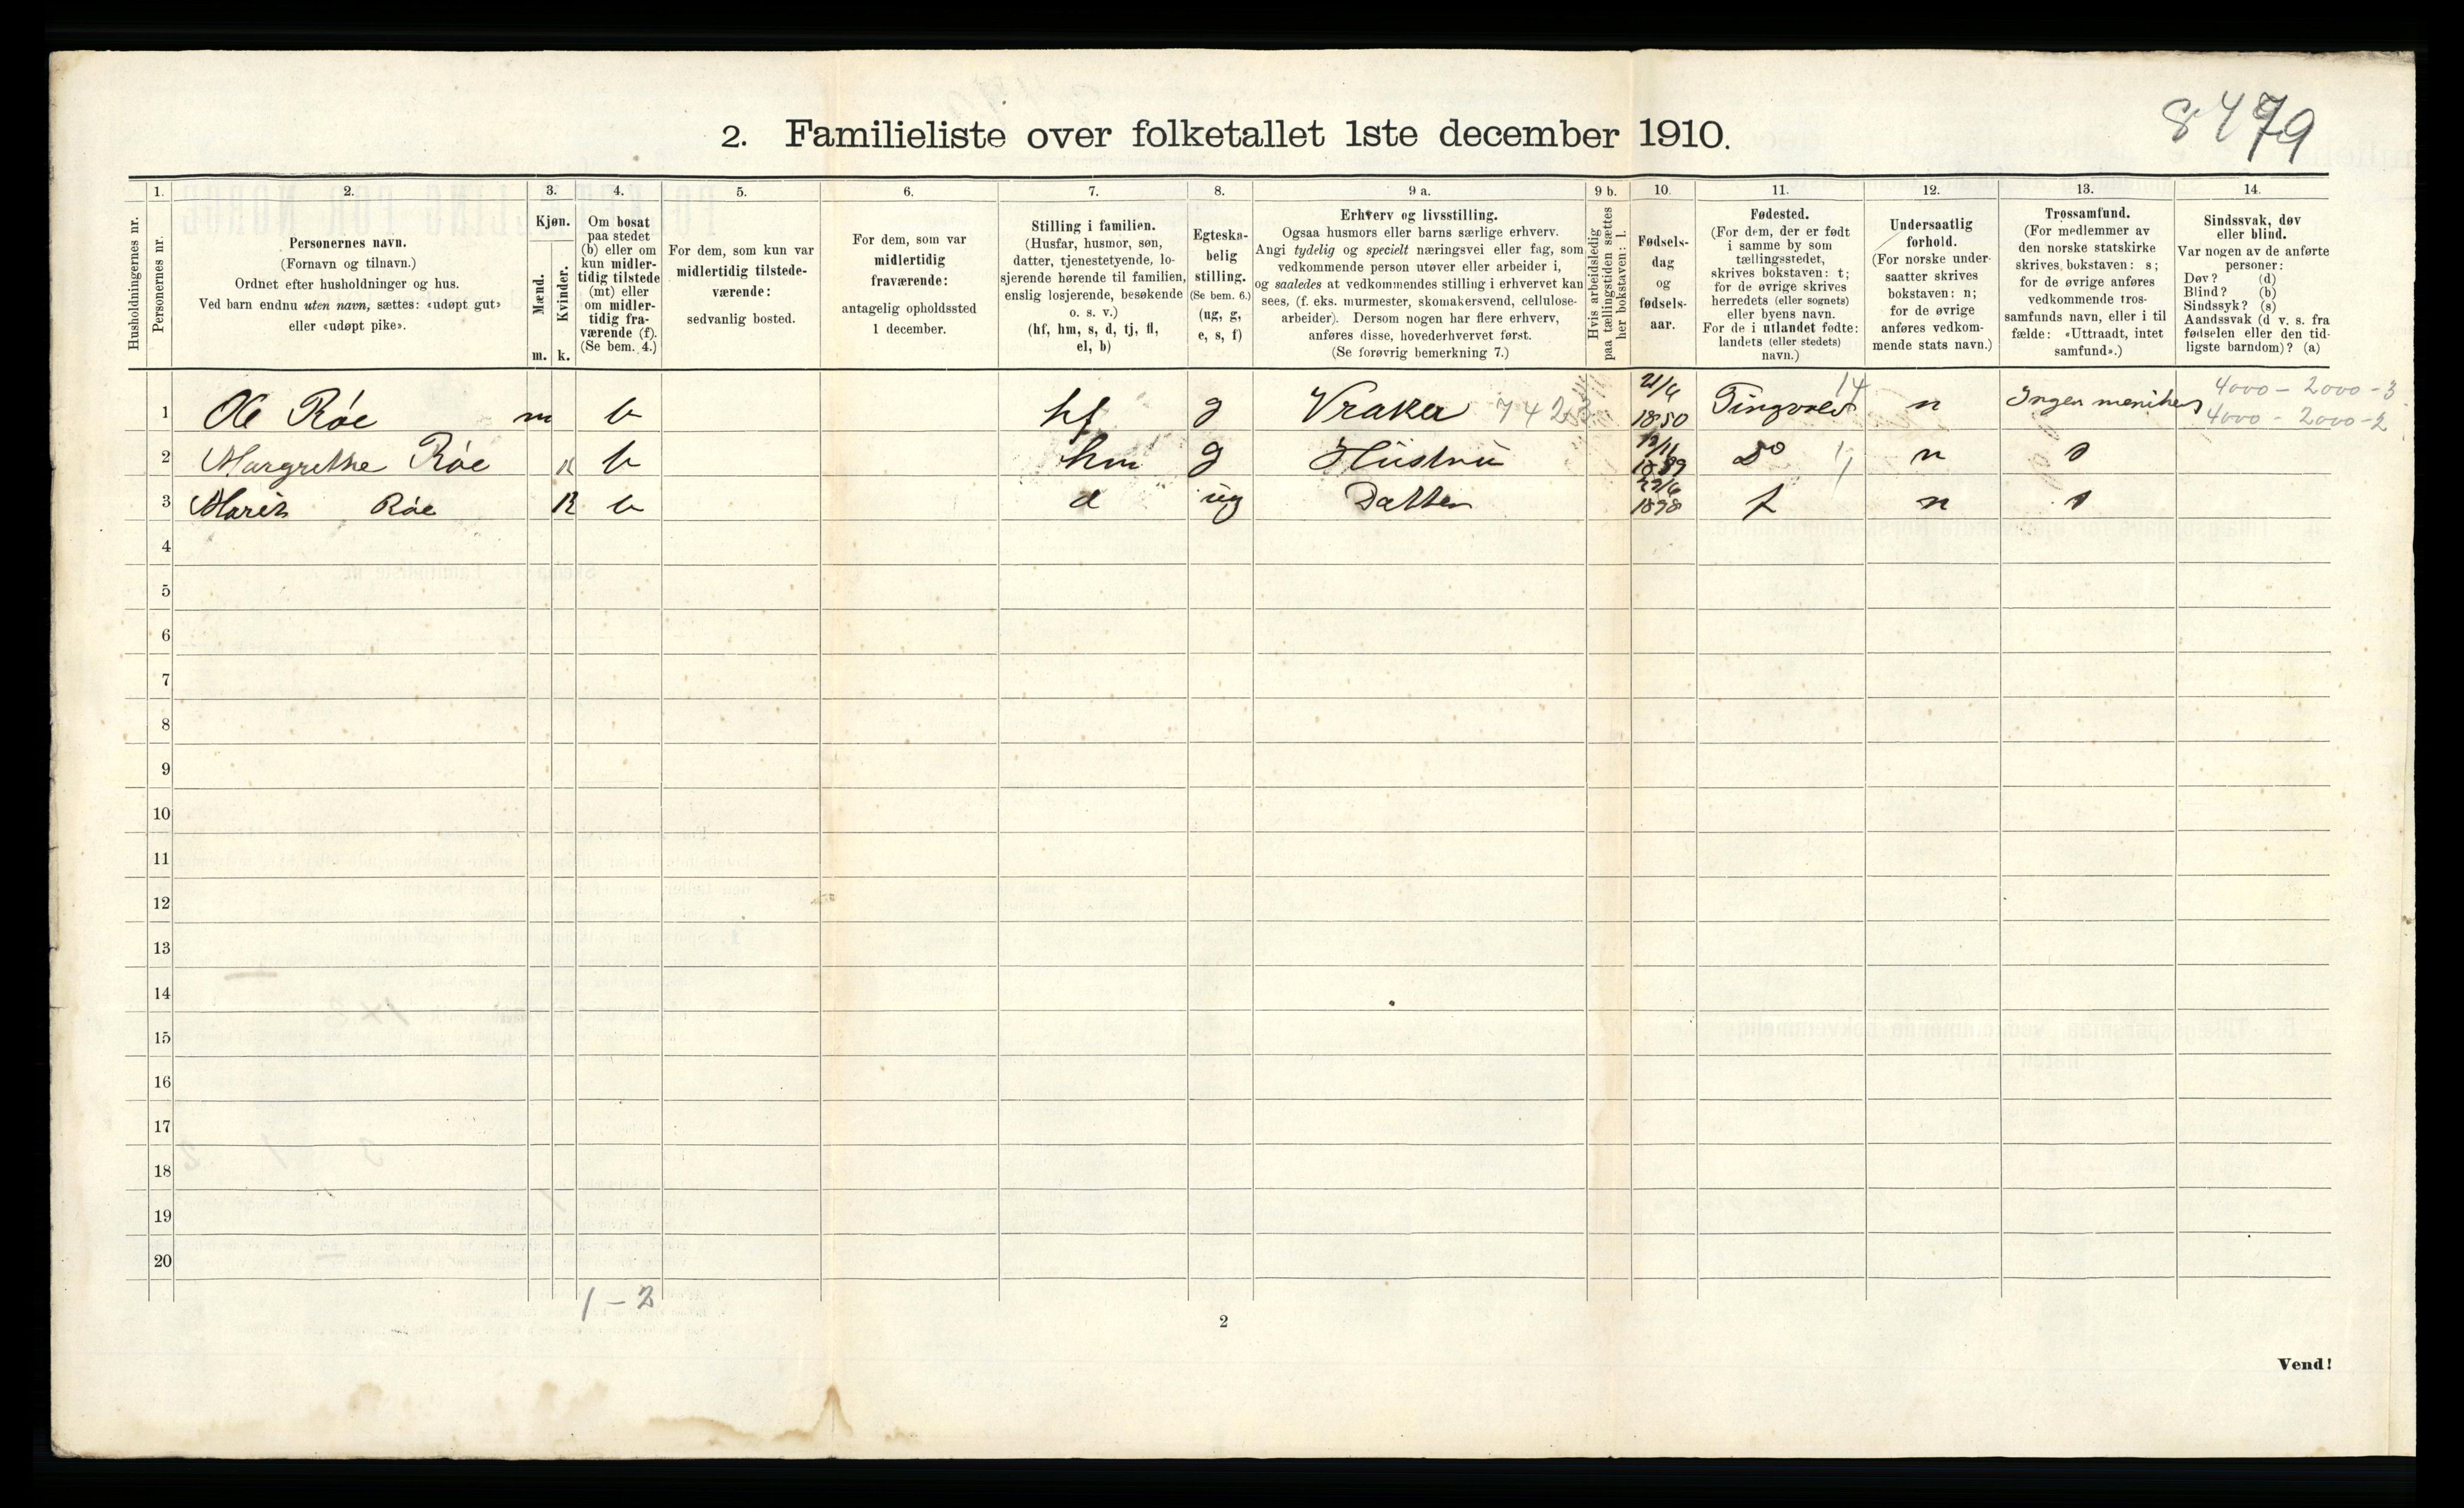 8479
2. Familieliste over folketallet 1ste december 1910.
Husholdningernes nr.
1.
Personernes nr.
2.
Personernes navn.
(Fornavn og tilnavn.)
Ordnet efter husholdninger og hus.
Ved barn endnu uten navn, sættes: «udøpt gut»
eller «udøpt pike».
3.
Kjøn.
Mænd.
Kvinder.
m. k.
4.
Om bosat
paa stedet
(b) eller om
kun midler-
tidig tilstede
(mt) eller
om midler-
tidig fra-
værende (f).
(Se bem. 4.)
5.
For dem, som kun var
midlertidig tilstede-
værende:
sedvanlig bosted.
6.
For dem, som var
midlertidig
fraværende:
antagelig opholdssted
1 december.
7.
Stilling i familien.
(Husfar, husmor, søn,
datter, tjenestetyende, lo-
sjerende hørende til familien,
enslig losjerende, besøkende
o. s. v.)
(hf, hm, s, d, tj, fl,
el, b)
8.
Egteska-
belig
stilling.
(Se bem. 6.)
(ug, g,
e, s, f)
9 a.
Erhverv og livsstilling.
Ogsaa husmors eller barns særlige erhverv.
Angi tydelig og specielt næringsvei eller fag, som
vedkommende person utøver eller arbeider i,
og saaledes at vedkommendes stilling i erhvervet kan
sees, (f. eks. murmester, skomakersvend, cellulose-
arbeider). Dersom nogen har flere erhverv,
anføres disse, hovederhvervet først.
(Se forøvrig bemerkning 7.)
9 b.
Hvis arbeidsledig
paa tællingstiden sættes
her bokstaven: l.
10.
Fødsels-
dag
og
fødsels-
aar.
11.
Fødested.
(For dem, der er født
i samme by som
tællingsstedet,
skrives bokstaven: t;
for de øvrige skrives
herredets (eller sognets)
eller byens navn.
For de i utlandet fødte:
landets (eller stedets)
navn.)
12.
Undersaatlig
forhold.
(For norske under-
saatter skrives
bokstaven: n;
for de øvrige
anføres vedkom-
mende stats navn.)
13.
Trossamfund.
(For medlemmer av
den norske statskirke
skrives bokstaven: s;
for de øvrige anføres
vedkommende tros-
samfunds navn, eller i til
fælde: «Uttraadt, intet
samfund».)
14.
Sindssvak, døv
eller blind.
Var nogen av de anførte
personer:
Døv? (d)
Blind? (b)
Sindssyk? (s)
Aandssvak (d v. s. fra
fødselen eller den tid-
ligste barndom)? (a)
1 Ole Røe m b hf g Vraker 1850 Tingvold 14 n Ingen 4000 - 2000 - 3
4000 - 2000 - 2
2 Margrethe Røe k b hm g Hustru 12/11 Do n s
3 Marit Røe k b d ug Datter 1898 t n s
4
5
6
7
8
9
10
11
12
13
14
15
16
17
18
19
20
1 - 2
2
Vend!